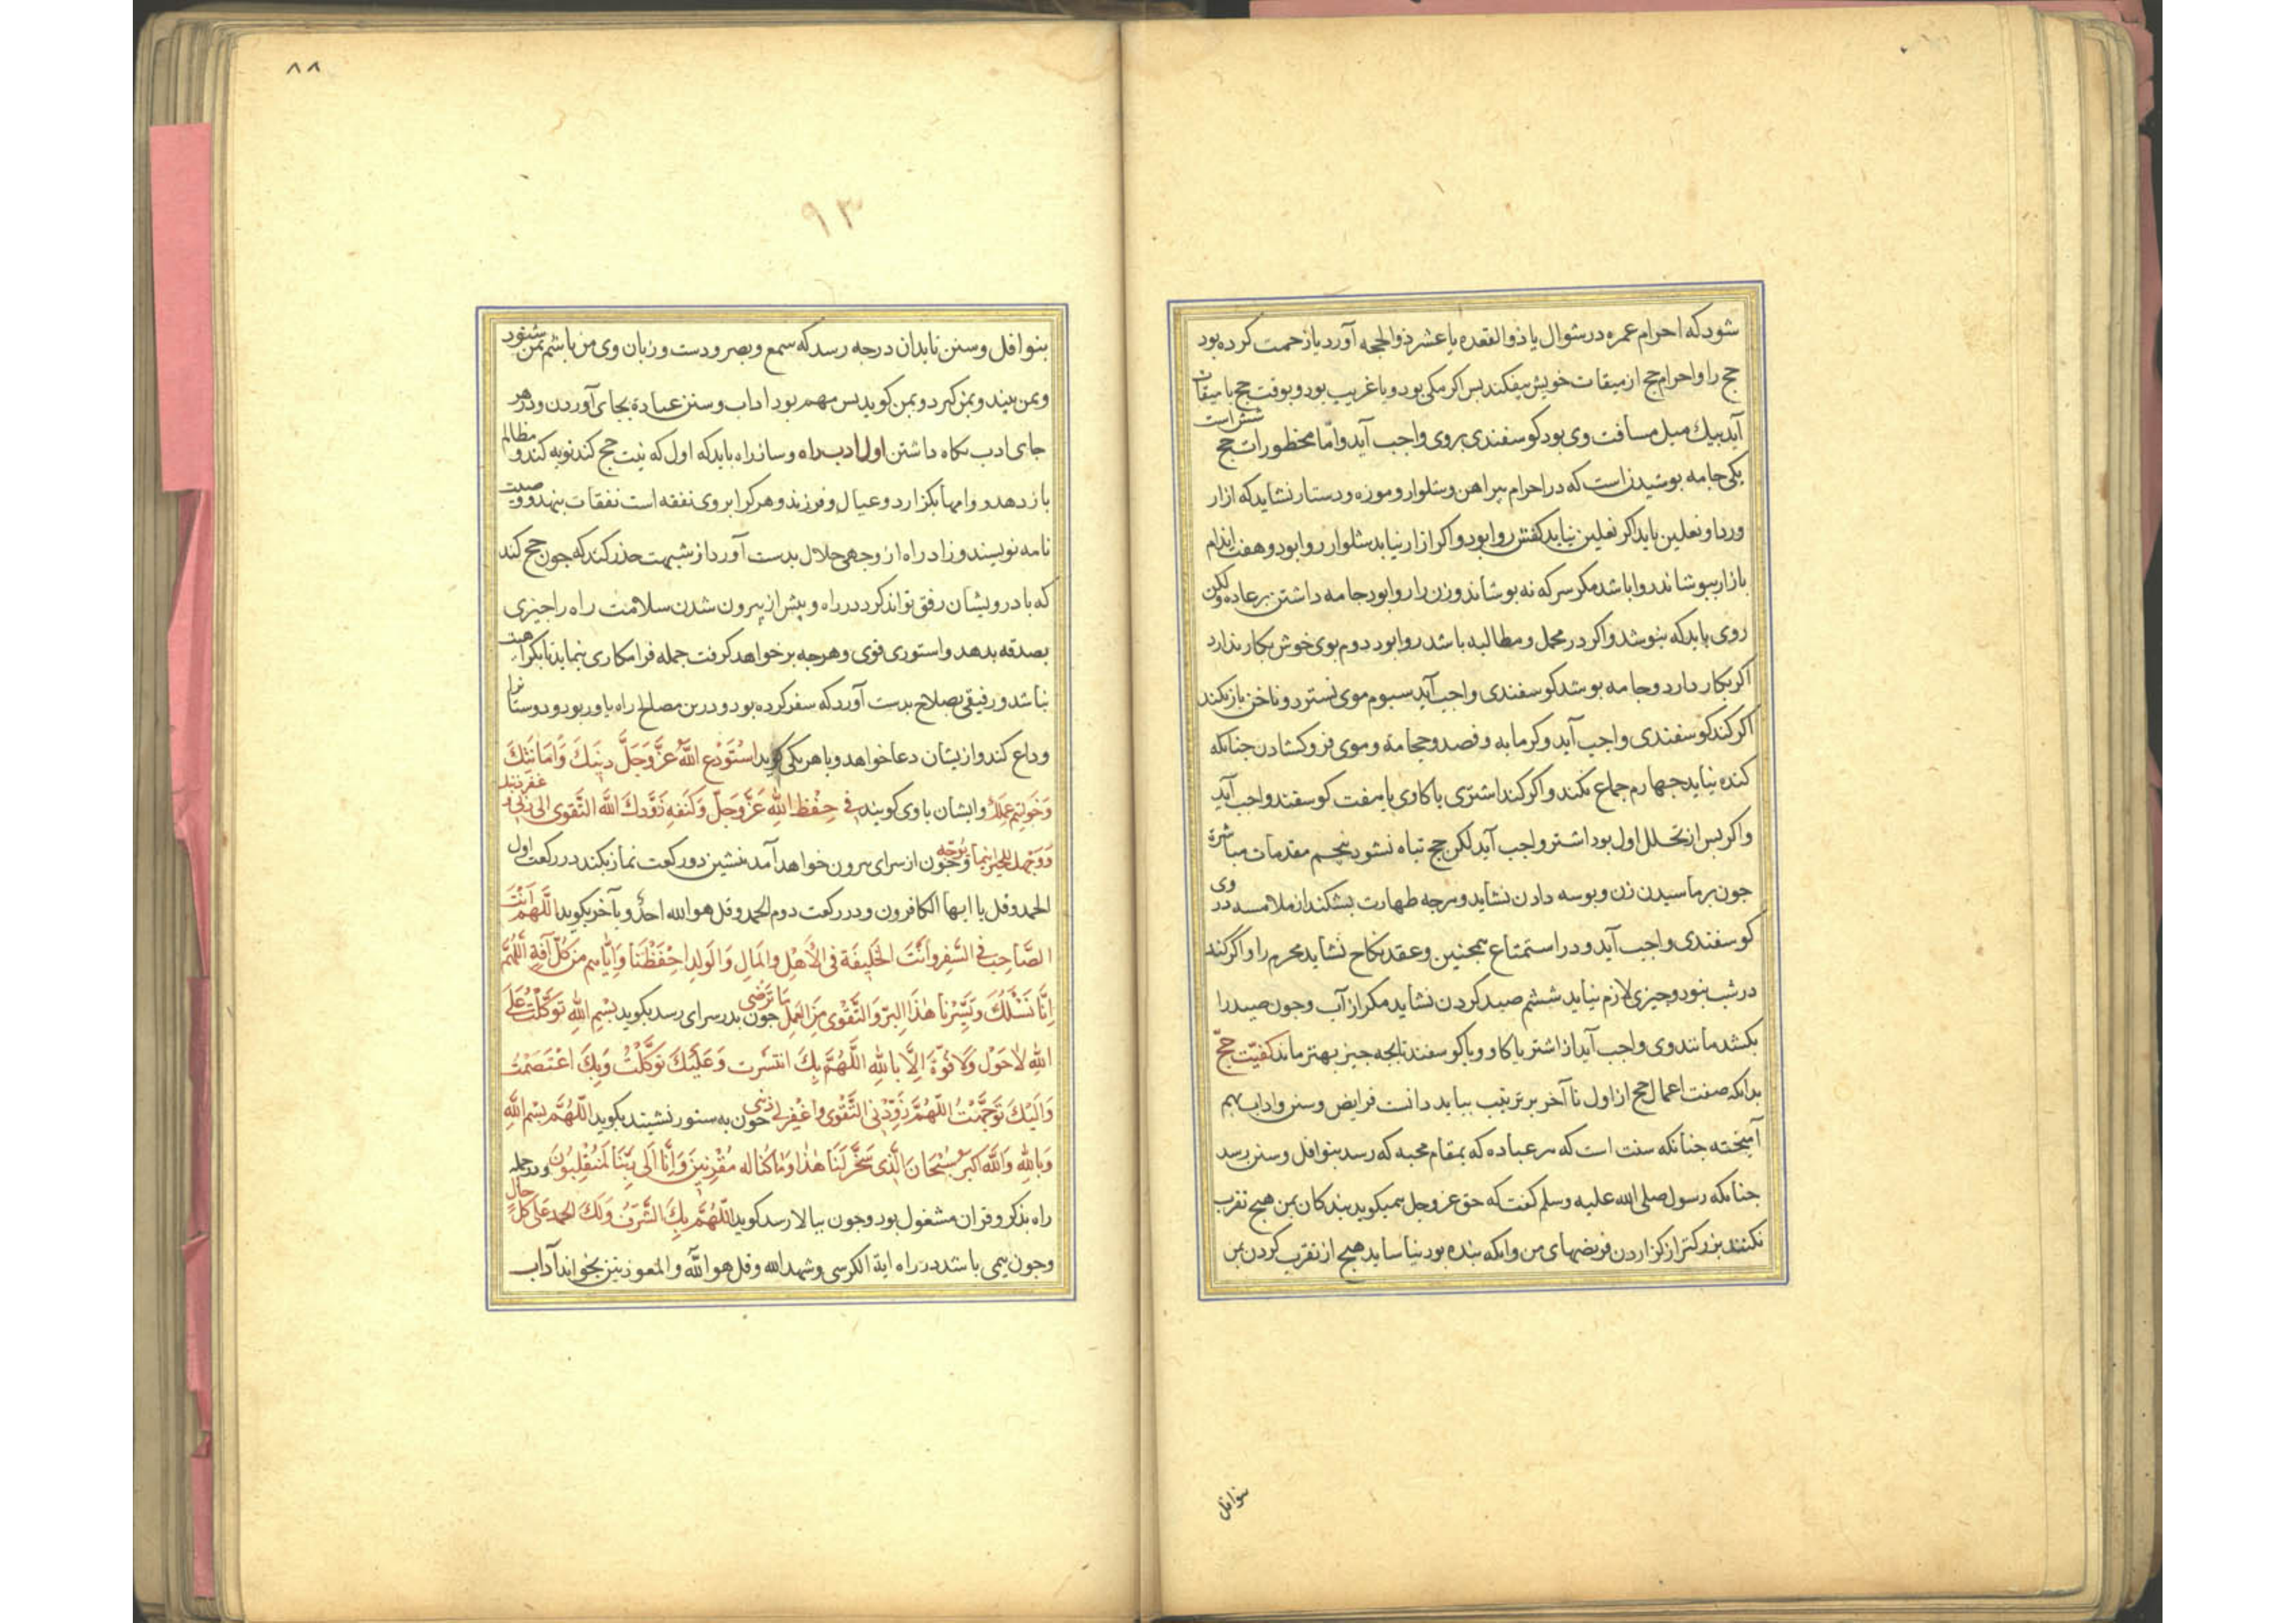 شود که احرام عمره در شوال یا ذوالقعده یا عشر ذوالحجه آورد یا زحمت کرده بود
حج را و احرام حج از میقات خویش بیفکند بس اکر مکی بود و یا غریب بود و بوقت حج با میقات
آید بیک میل مسافت وی بود کوسفندی بروی واجب آید و امّا محظورات حج شش است
یکی جامه بوشیدن است که در احرام پیراهن و شلوار و موزه و دستار نشاید که ازار
و ردا و نعلین باید اکر نعلین نیابد کفش روا بود و اکر ازار نیابد شلوار روا بود و هفت اندام
بازار ببوشاند روا باشد مکر سر که نه بوشاند و زن را روا بود جامه داشتن بر عاده و لکن
روی باید که بنوشد و اکر در محمل و مطالبه باشد روا بود دوم بوی خوش بکار ندارد
اکر بکار دارد و جامه بوشد کوسفندی واجب آید سیوم موی نسترد و ناخن باز نکند
اکر کند کوسفندی واجب آید و کرمابه و فصد و حجامة و موی فرو کشادن جنانکه
کنده نیاید جهارم جماع نکند و اکر کند اشتری یا کاوی یا هفت کوسفند واجب آید
و اکر بس از تحلل اول بود اشتر واجب آید لکن حج تباه نشود پنجم مقدمات مباشرة
جون برماسیدن زن و بوسه دادن نشاید و هرجه طهارت بشکند از ملامسه در وی
کوسفندی واجب آید و در استمتاع همجنین و عقد نکاح نشاید محرم را و اکر کند
درشب نبود و چیزی لازم نیاید ششم صید کردن نشاید مکر از آب و جون صید را
بکشد مانند وی واجب آید از اشتر یا کاو و یا کوسفند تا بجه جیز بهتر ماند کفیّت حجّ
بدانکه صفت اعمال حج از اول تا آخر بر ترتیب بباید دانست فرایض و سنن و اداب بهم
آمیخته جنانکه سنت است که هر عباده که بمقام محبه که رسد بنوافل و سنن رسد
جنانکه رسول صلی الله علیه وسلم کفت که حق عز وجل همیکوید بندکان بمن هیچ تقرب
نکنند بزرکتر از کزاردن فریضهای من و انکه بنده بود نیاساید هیچ از تقرب کردن بمن
بنوافل
۸۸
۹۳
بنوافل و سنن تا بدان درجه رسد که سمع و بصر و دست و زبان وی من باشم بمن شنود
و بمن بیند و بمن کیرد و بمن کوید بس مهم بود اداب و سنن عبادة بجای آوردن و در هر
جای ادب نکاه داشتن اول ادب راه و ساز راه باید که اول که نیت حج کند توبه کند و مظالم
باز دهد و وامها بکزارد و عیال و فرزند و هر کرا بروی نفقه است نفقات بنهد و وصیت
نامه نویسند و زاد راه از وجهی حلال بدست آورد از شبهت حذر کند که جون حج کند
که با درویشان رفق تواند کرد در راه و پیش از بیرون شدن سلامت راه را جیزی
بصدقه بدهد و استوری قوی و هرجه بر خواهد کرفت جمله فرا مکاری بنماید تا بکراهیت
نباشد و رفیقی بصلاح بدست آورد که سفر کرده بود و درین مصالح راه یاور بود و دوستانرا
وداع کند و ازیشان دعا خواهد و با هر یکی کوید استَوْدع اللهَ عزَّوَجَلَّ دینَكَ وَاَمَانَتَكَ
وَخَوَاتِیمَ عَمَلِكَ و ایشان با وی کویند فی حِفْظِ اللهِ عَزَّوَجَلَّ وَكَنَفِهِ زَوَّدَكَ اللهُ التَّقوى
وَوَجَّهَكَ لِلخَیرِ اَینَما تَوَجَّه و جون از سرای بیرون خواهد آمد بنشین دو رکعت نماز بکند در رکعت اول
الحمد و قل یا ایها الکافرون و در رکعت دوم الحمد و قل هو الله احدٌ و بآخر بکوید اللّهُمَّ اَنْتَ
الصَّاحِبُ فی السَّفَرِ وَاَنْتَ الخَلیفَة فی الأَهْلِ وَالمَالِ وَالوَلِدِ اِحْفَظْنَا وَاِیَّاهم مِن كُلِّ آفَةٍ اَللّهُمَّ
اِنَّا نَسْئَلُكَ وَیَسِّرْنا هٰذَا البِرَّ وَالتَّقْوى مِنَ العَمَلِ مَا تَرْضى جون بدر سرای رسد بکوید بِسْمِ اللهِ تَوَكَّلْتُ عَلى
اللهِ لا حَوْلَ وَلا قُوَّةَ اِلَّا بِاللهِ اللّهُمَّ بِكَ انتشرت وَعَلَیْكَ تَوَكَّلْتُ وَبِكَ اعْتَصَمْتُ
وَاِلَیْكَ تَوَجَّهْتُ اللّهُمَّ زَوِّدْنی التَّقْوى وَاغْفِرْ لی ذنبی جون به ستور نشیند بکوید اللّهُمَّ بِسْمِ اللهِ
وَبِاللهِ وَاللهُ اكبَر سُبْحَانَ الَّذی سَخَّرَ لَنَا هٰذَا وَمَا كُنَّا لَهُ مُقْرِنِینَ وَاِنَّا اِلى رَبِّنَا لَمُنْقَلِبُونَ و در جمله
راه بذکر و قران مشغول بود و جون ببالا رسد کوید اَللّهُمَّ بِكَ الشَّرَفُ وَلَكَ الحَمد عَلى كُلِّ حَالٍ
و جون بیمی باشد در راه ایة الکرسی و شهد الله و قل هو الله و المعوذتین بخواند آداب